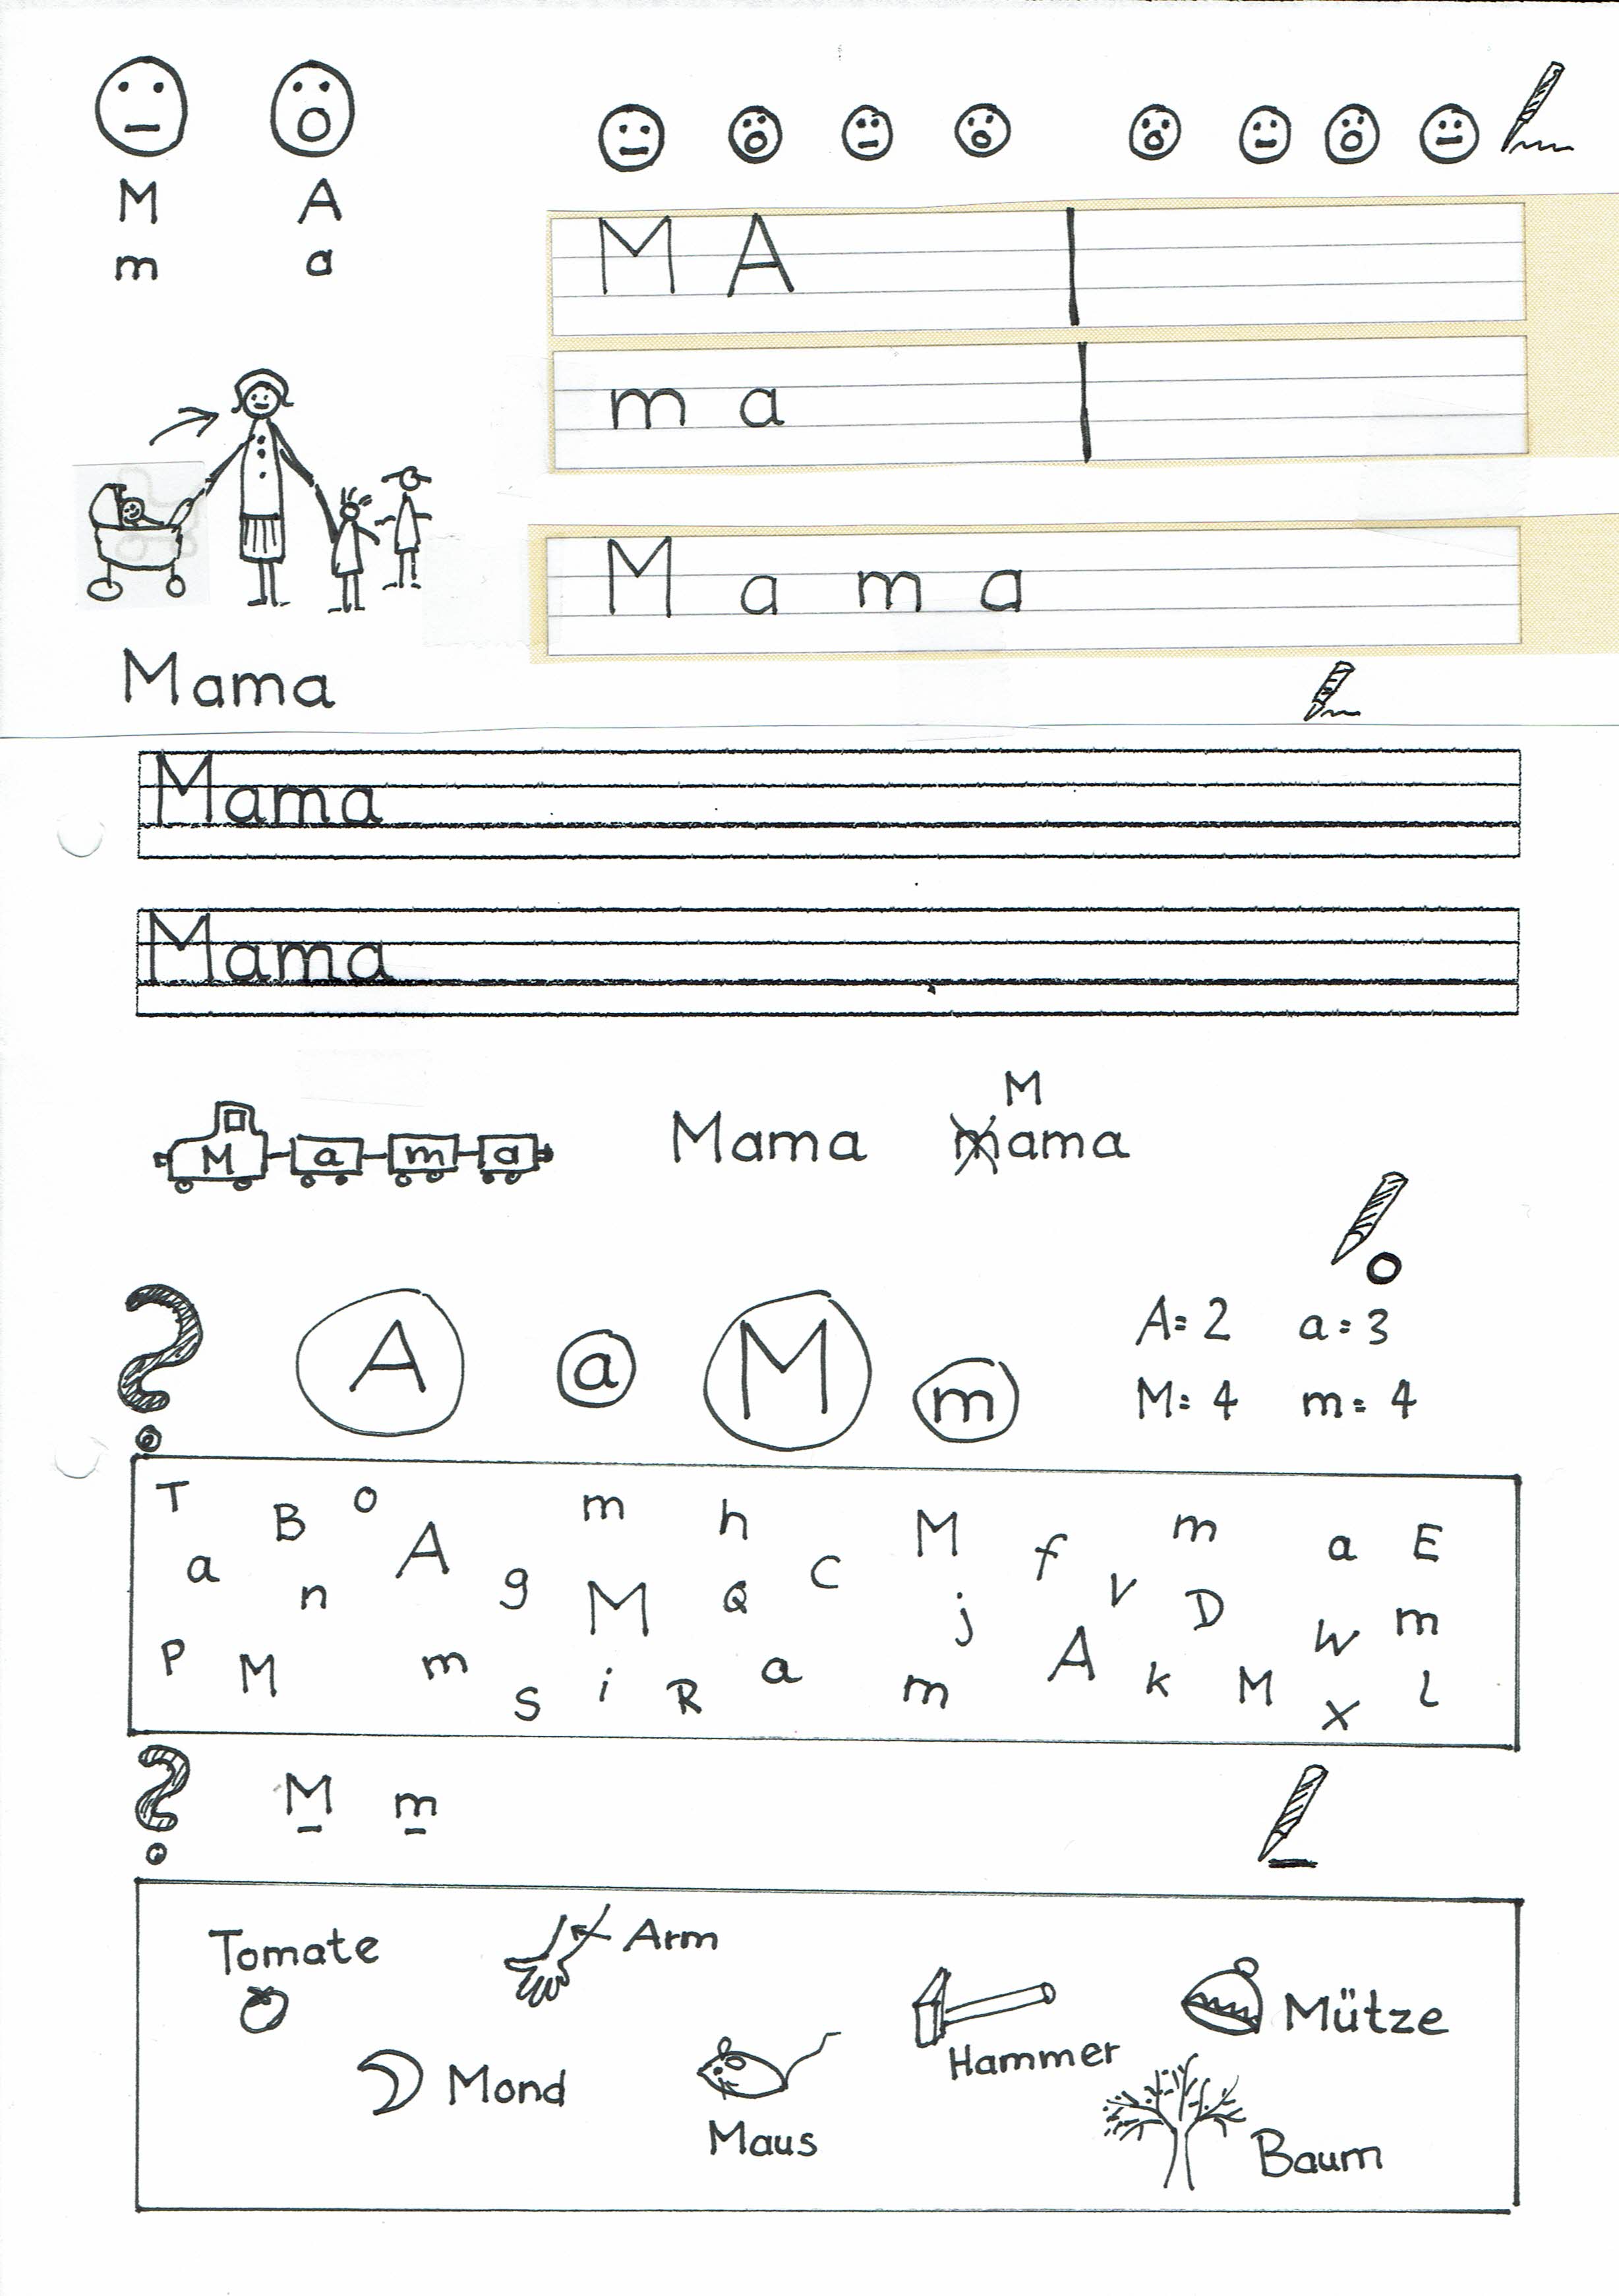 M A
m a
M A
m a
M a m a
Mama
Mama
Mama
M a m a
Mama
M
mama
A a M m
A = 2 a = 3
M = 4 m = 4
T B o A m h M f m a E
a n g M Q c j V D W m
P M m S i R a m A k M x l
M m
Tomate
Arm
Mütze
Hammer
Mond
Maus
Baum